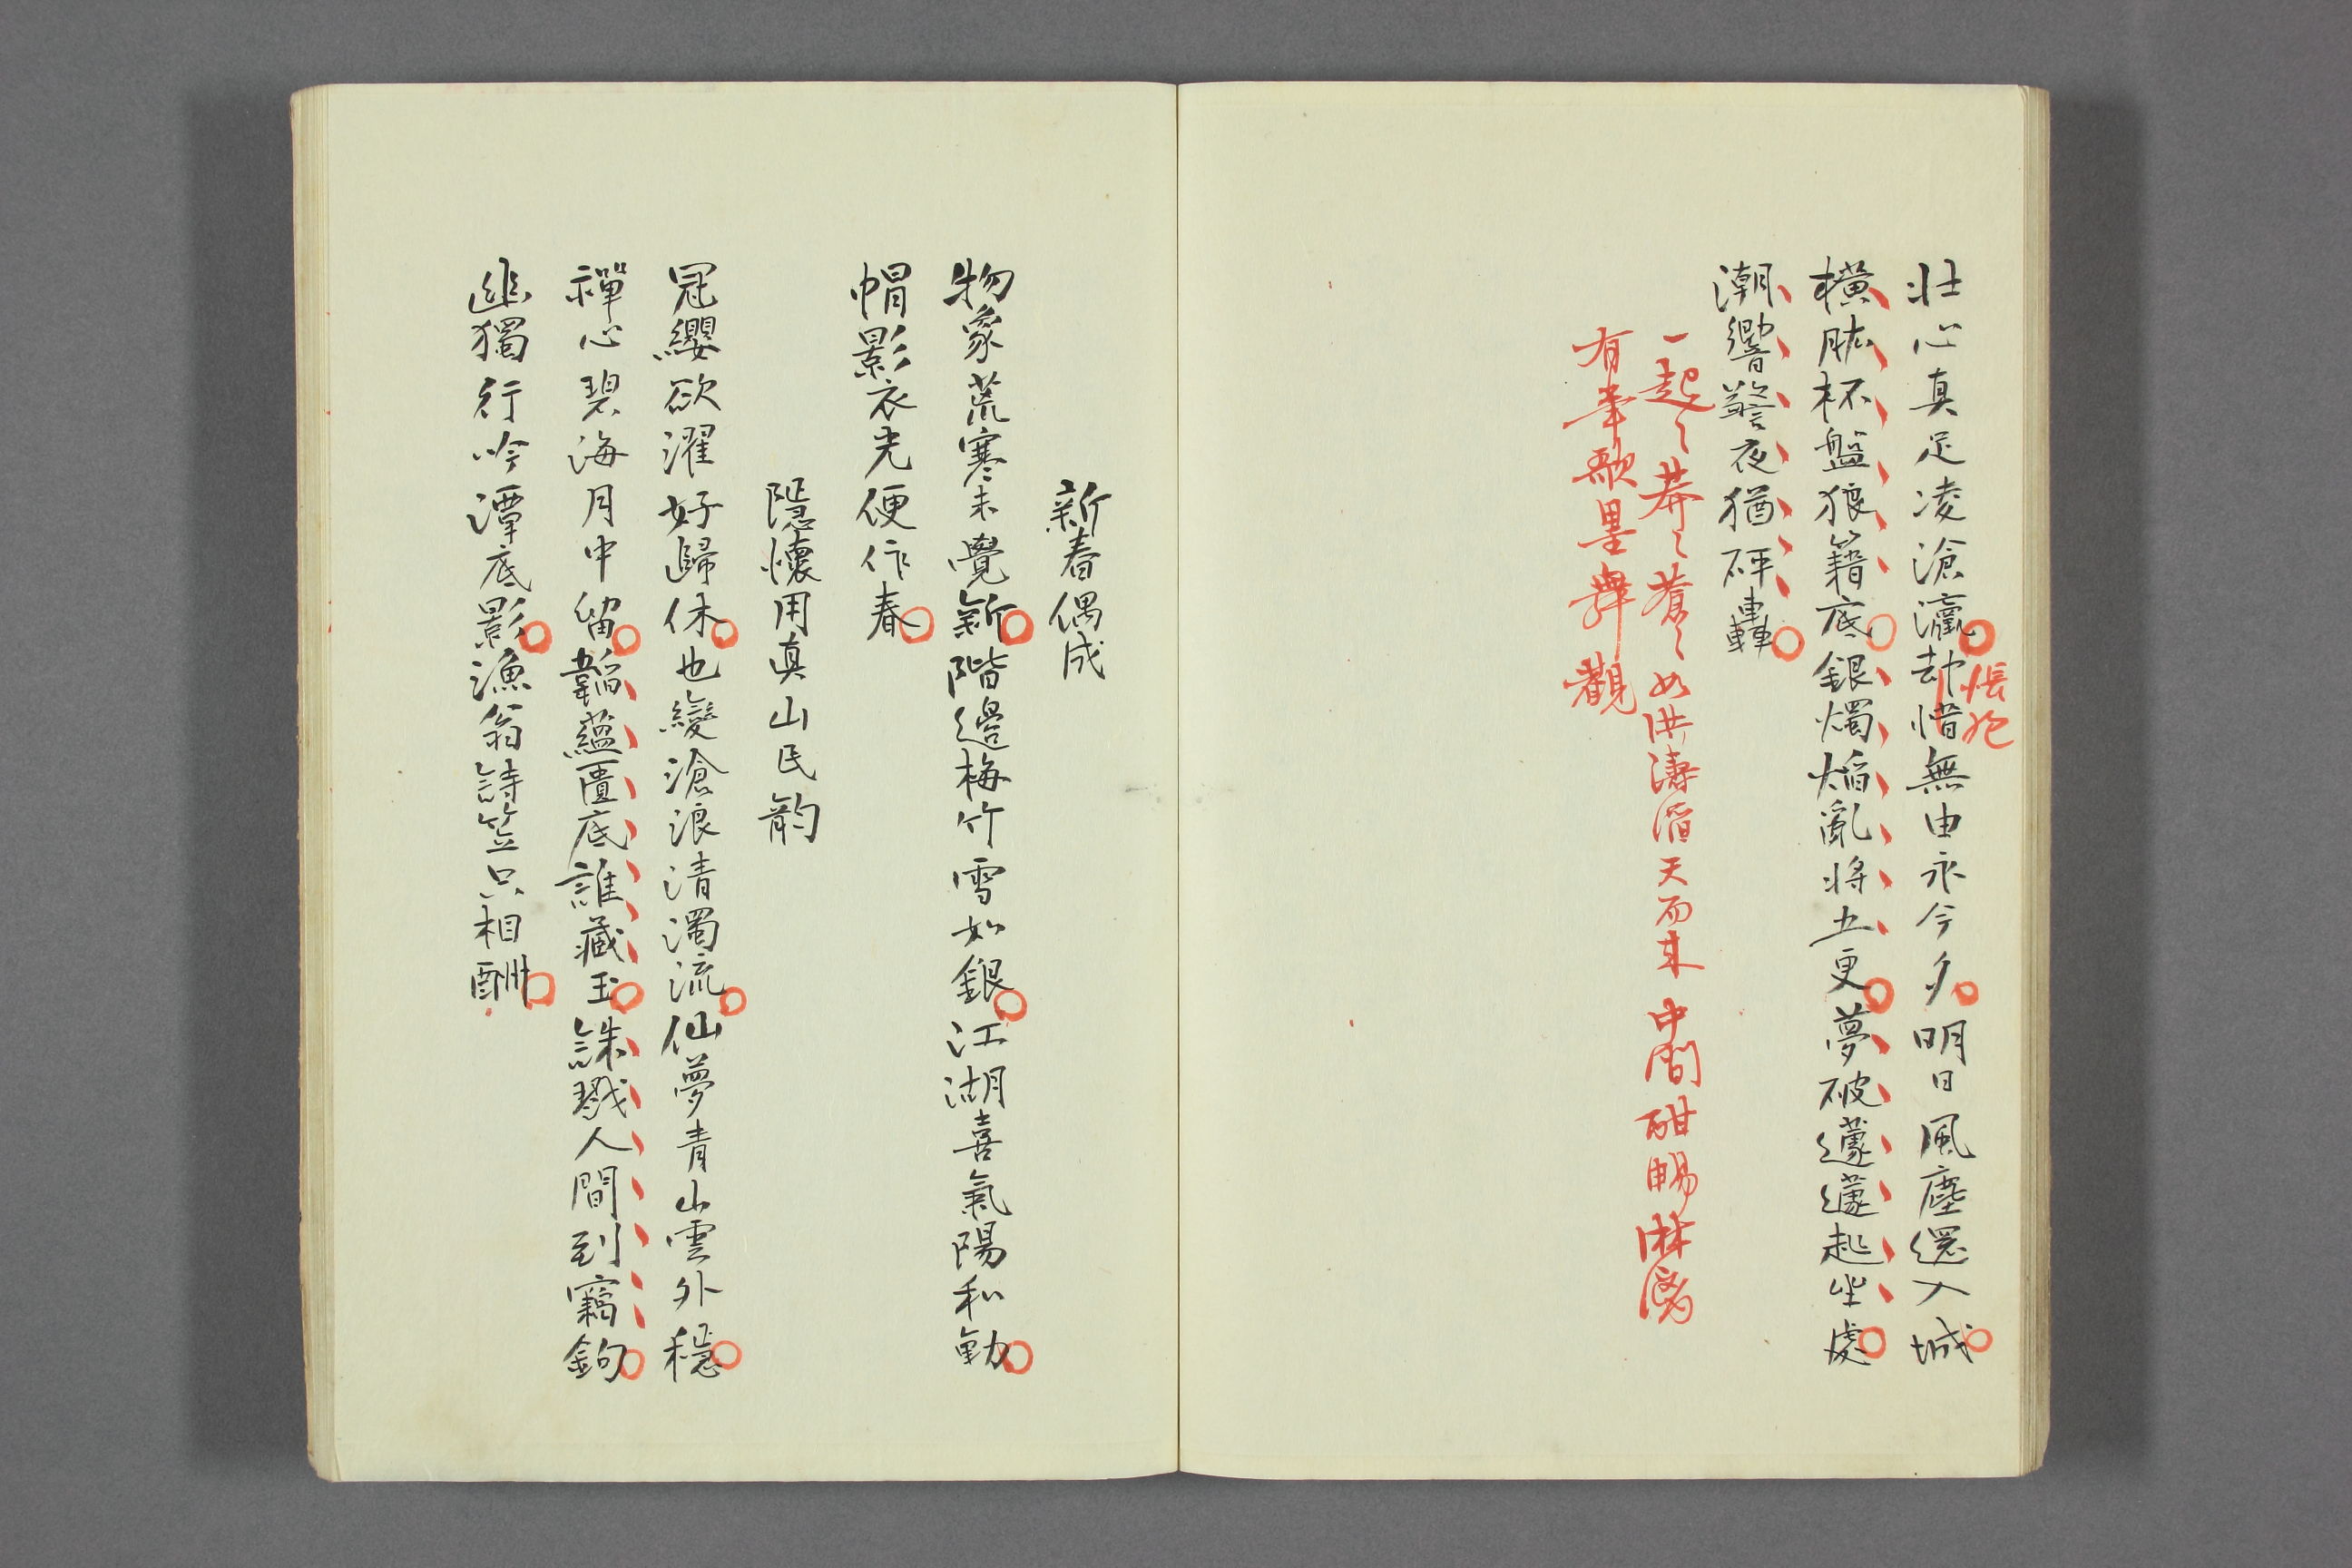 壮心真足凌滄瀛却惜無由永今夕明日風塵還入城
悵 
橫肱杯盤狼籍底銀燭焰亂將五更夢破蘧蘧起坐處
潮響警夜猶砰轟
一起々莽々蒼々如洪濤滔天而来中間酣暢淋漓
有幸歌墨舞觀
新春偶成
物象荒寒未覺新階邊梅竹雪如銀江湖喜氣陽和動
帽影衣光便作春
隠懷用真山民韵
冠纓欲濯好歸休也變滄浪清濁流仙夢青山雲外穩
禪心碧海月中留韜蘊匱底誰藏玉誅戮人間到竊鉤
幽獨行吟潭底影漁翁詩笠只相酬